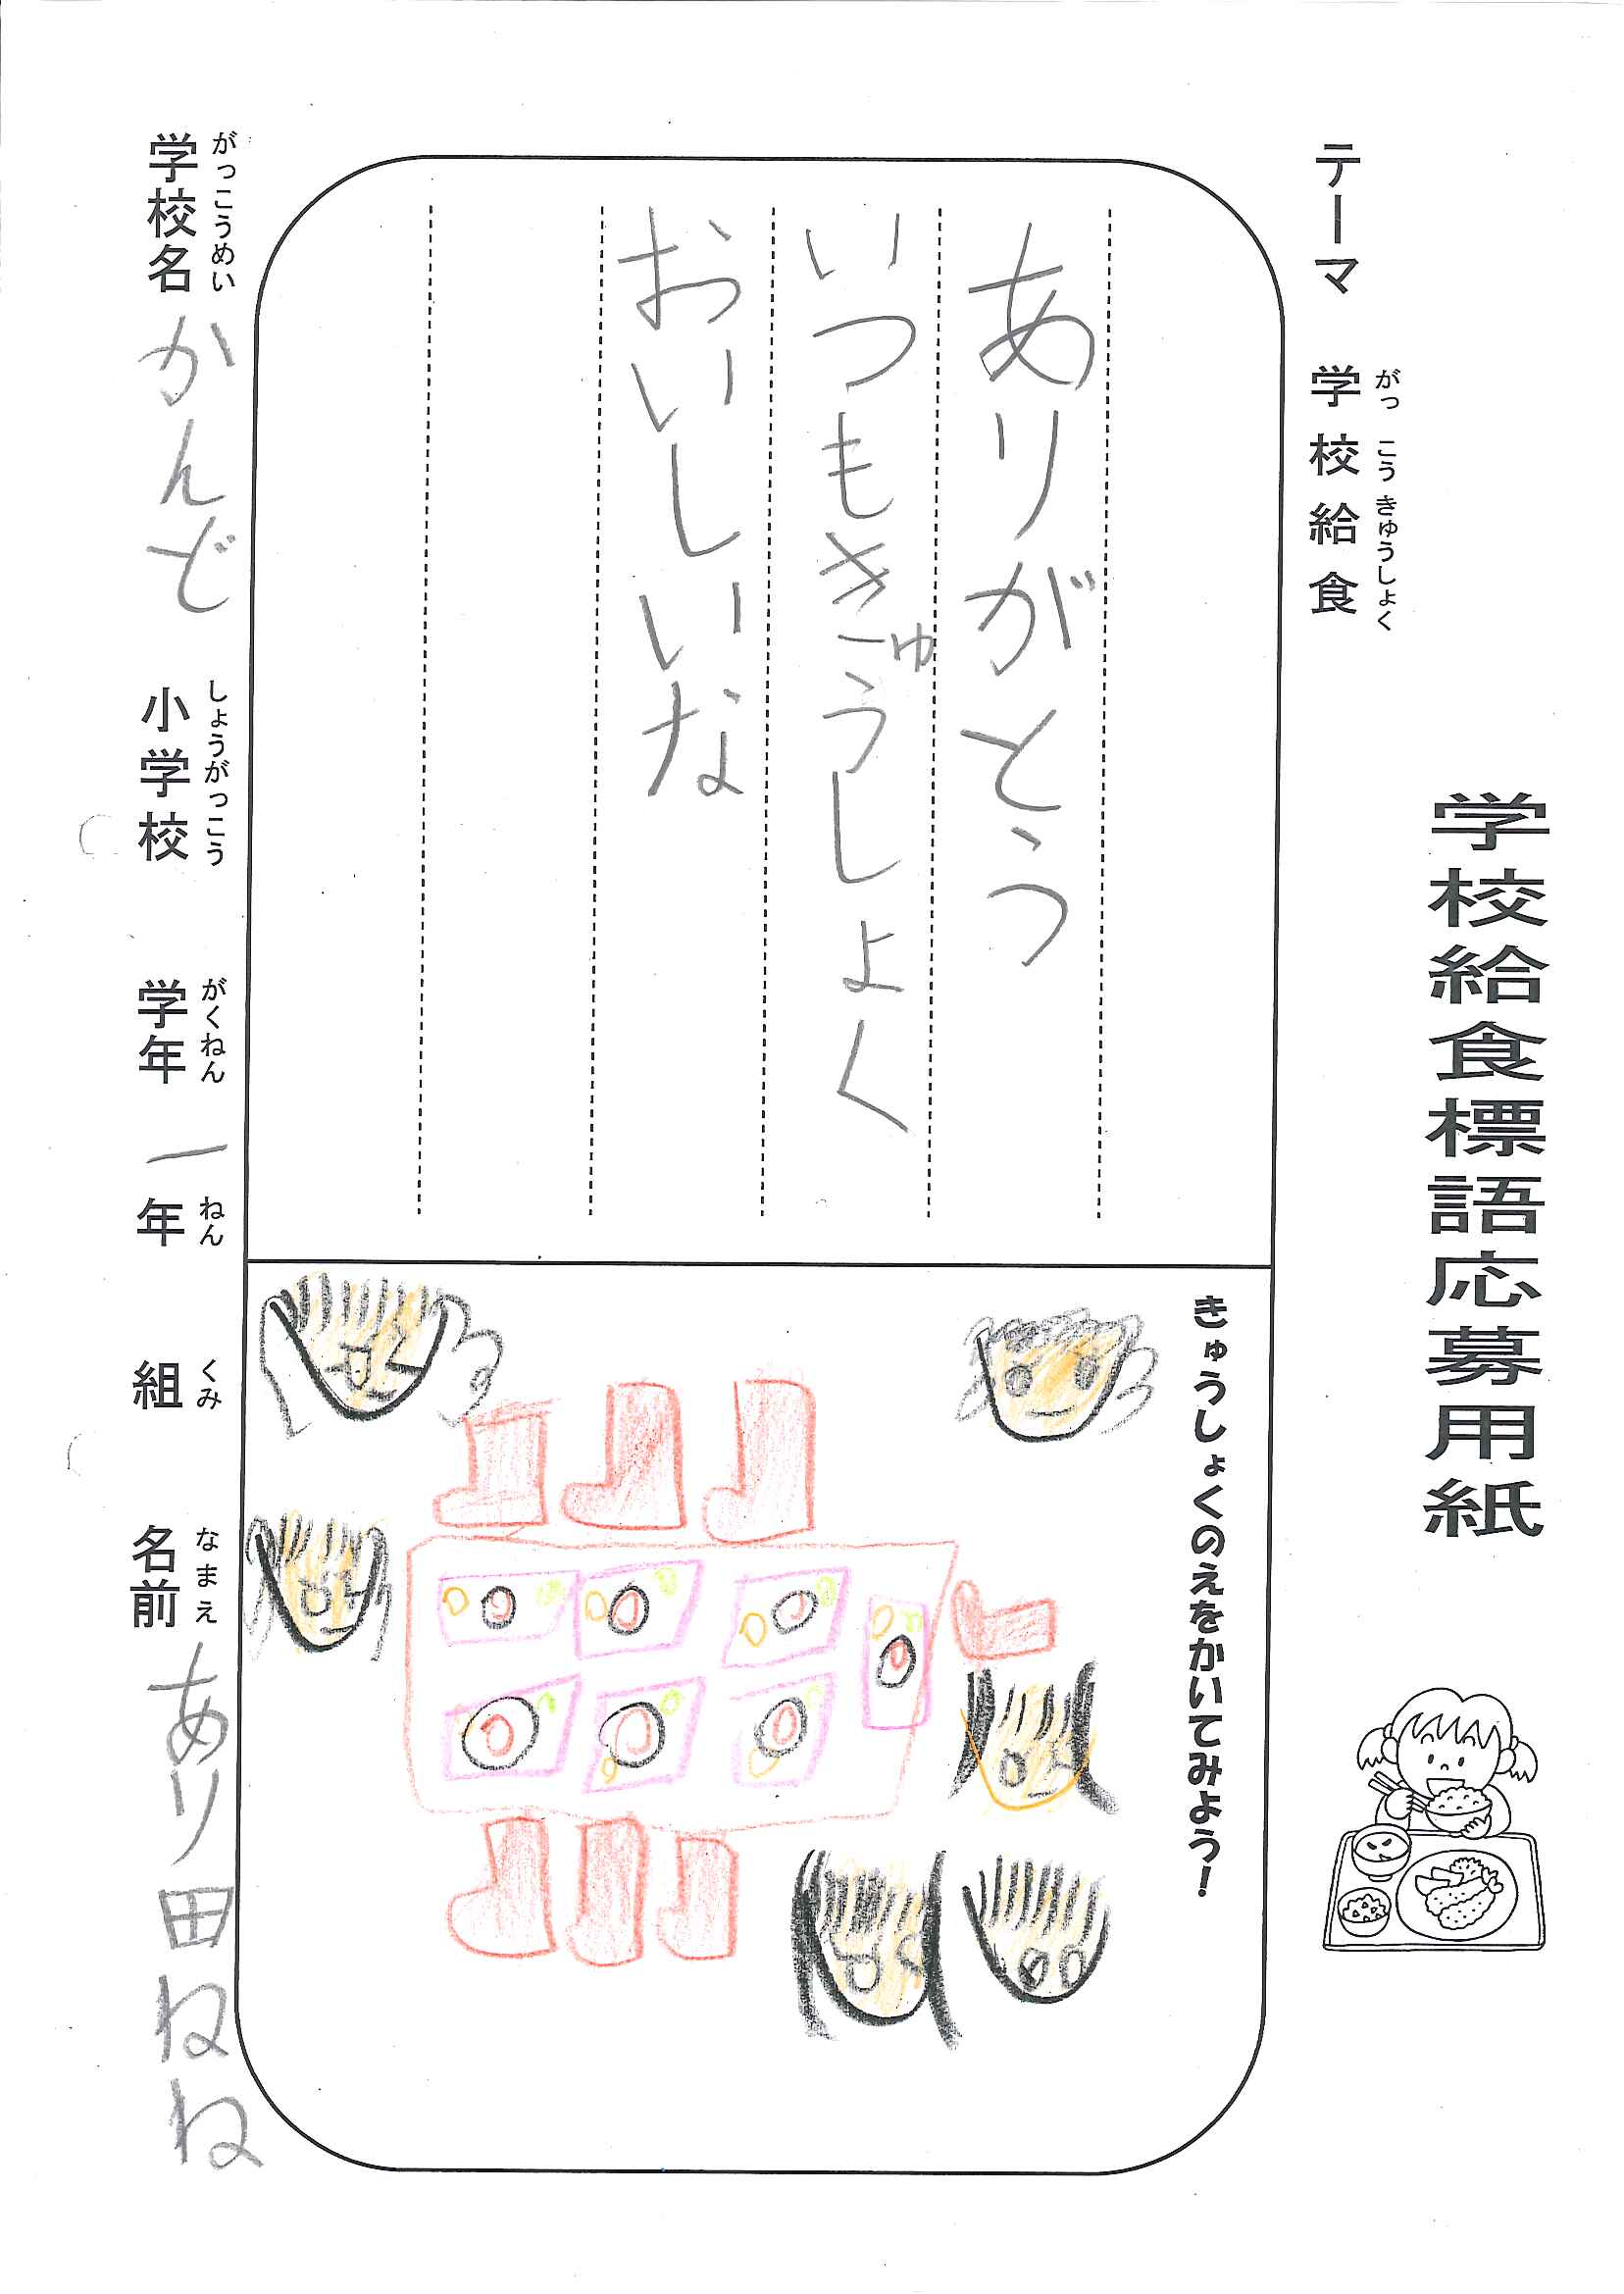 学校給食標語応募用紙
テーマ 学校給食
がっこうきゅうしょく
ありがとう
いつもきゅうしょく
おいしいな
きゅうしょくのえをかいてみよう!
がっこうめい しょうがっこう がくねん ねん くみ なまえ
学校名 かんど 小学校 学年 一年 組 名前 あり田ねね